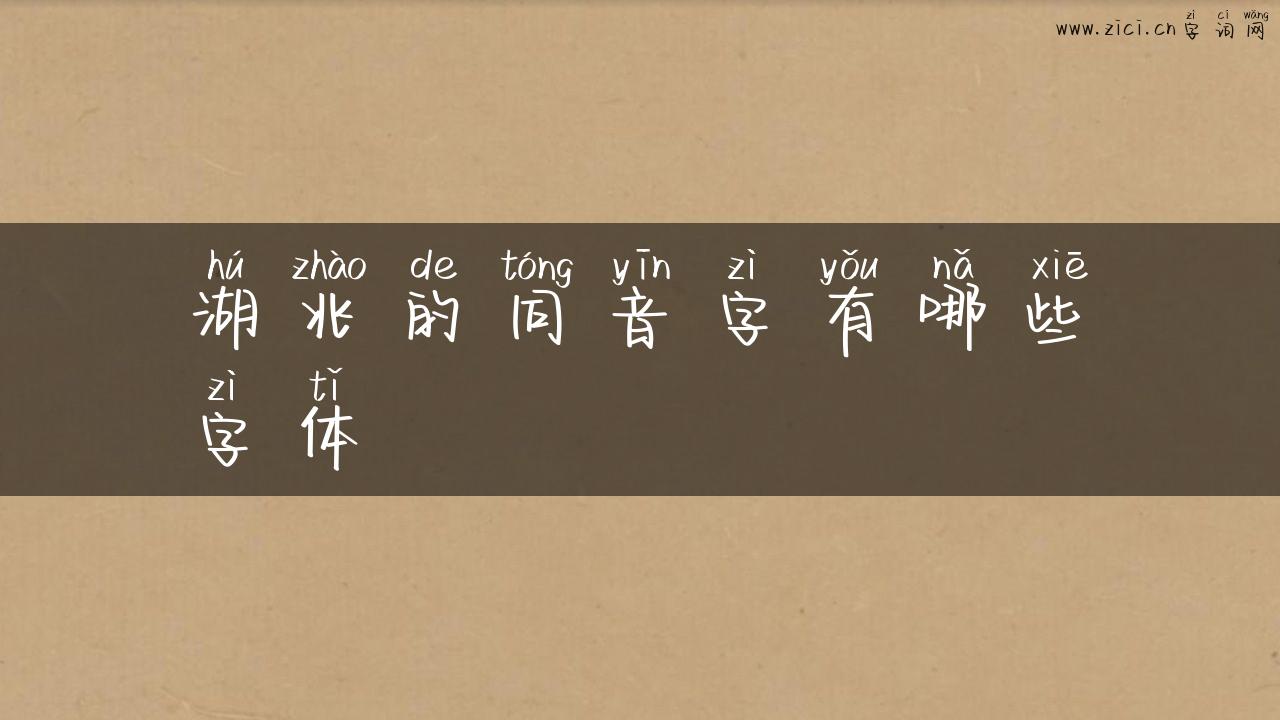 www.zici.cn zì cí wǎng
字词网
hú zhào de tóng yīn zì yǒu nǎ xiē
湖兆的同音字有哪些
zì tǐ
字体